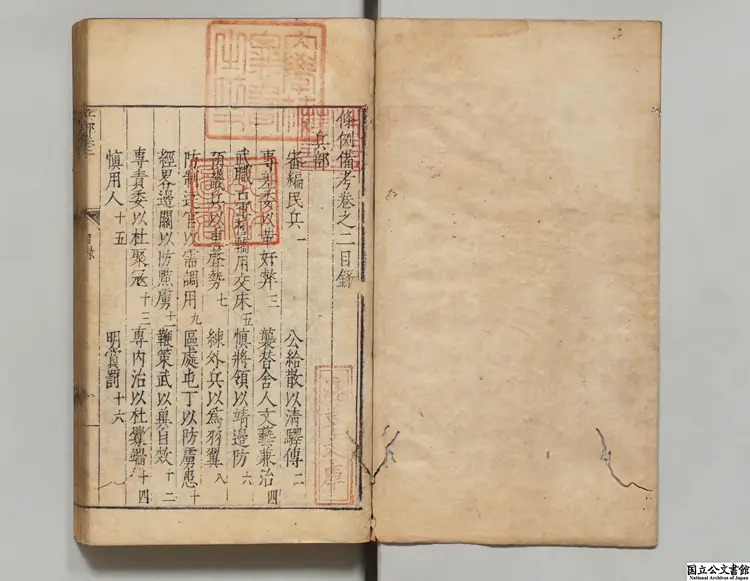 條例備考卷之二目錄
兵部
審編民兵 一 公給散以清驛傳 二
專差委以革奸弊 三 襲替舍人文藝兼治 四
武職占軍轎用交床 五 慎將領以靖邊防 六
畿兵以重聲勢 七 練外兵以爲羽翼 八
防制達官以需調用 九 區處屯丁以防虜患 十
經畧邊關以防黠虜 十一 鞭策武以異自效 十二
專責委以杜聚寇 十三 專內治以杜釁端 十四
慎用人 十五 明賞罰 十六
兵部卷二
目錄
國立公文書館
National Archives of Japan